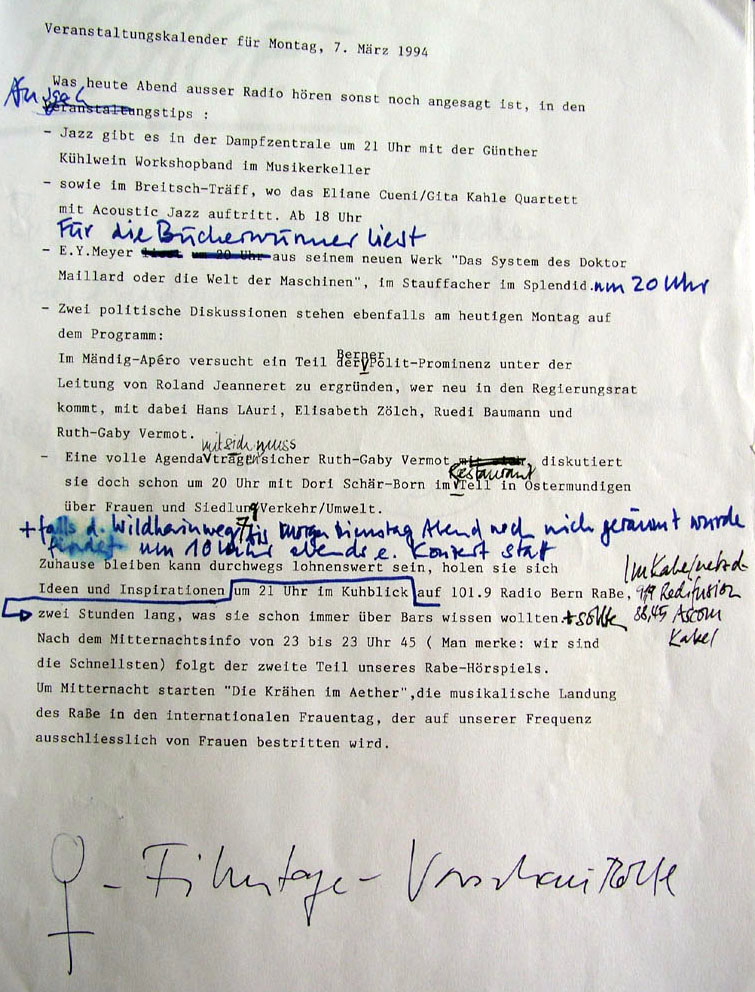 Veranstaltungskalender für Montag, 7. März 1994
Was heute Abend ausser Radio hören sonst noch angesagt ist, in den
Ausgeh
Veranstaltungstips :
- Jazz gibt es in der Dampfzentrale um 21 Uhr mit der Günther
Kühlwein Workshopband im Musikerkeller
- sowie im Breitsch-Träff, wo das Eliane Cueni/Gita Kahle Quartett
mit Acoustic Jazz auftritt. Ab 18 Uhr
Für die Bücherwürmer liest
- E.Y.Meyer liest um 20 Uhr aus seinem neuen Werk "Das System des Doktor
Maillard oder die Welt der Maschinen", im Stauffacher im Splendid. um 20 Uhr
- Zwei politische Diskussionen stehen ebenfalls am heutigen Montag auf
dem Programm:
Berner
Im Mändig-Apéro versucht ein Teil der Polit-Prominenz unter der
Leitung von Roland Jeanneret zu ergründen, wer neu in den Regierungsrat
kommt, mit dabei Hans LAuri, Elisabeth Zölch, Ruedi Baumann und
Ruth-Gaby Vermot.
mit sich muss
- Eine volle Agenda trägen sicher Ruth-Gaby Vermot diskutiert
Restaurant
sie doch schon um 20 Uhr mit Dori Schär-Born im Tell in Ostermundigen
über Frauen und Siedlung/Verkehr/Umwelt.
+ falls d. Wildhainweg 7/9 bis morgen Dienstag Abend noch nich geräumt wurde
findet um 10 Uhr abends e. Konzert statt
Zuhause bleiben kann durchwegs lohnenswert sein, holen sie sich
Ideen und Inspirationen um 21 Uhr im Kuhblick auf 101.9 Radio Bern RaBe,
Im Kabelnetz d.
Rediffusion
88,45 Ascom
Kabel
zwei Stunden lang, was sie schon immer über Bars wissen wollten. + sollte
Nach dem Mitternachtsinfo von 23 bis 23 Uhr 45 ( Man merke: wir sind
die Schnellsten) folgt der zweite Teil unseres Rabe-Hörspiels.
Um Mitternacht starten "Die Krähen im Aether",die musikalische Landung
des RaBe in den internationalen Frauentag, der auf unserer Frequenz
ausschliesslich von Frauen bestritten wird.
♀ - Filmtage - Vorschau